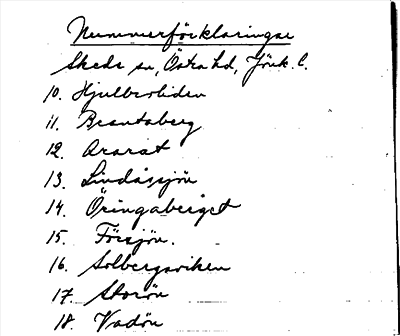 Nummerförklaringar
Skede sn, Östra hd, Jönk. l.
10. Hjulbroliden
11. Brantaberg
12. Ararat
13. Lindåssjön
14. Öringaberget
15. Försjön.
16. Solbergsviken
17. Storön
18. Vadön